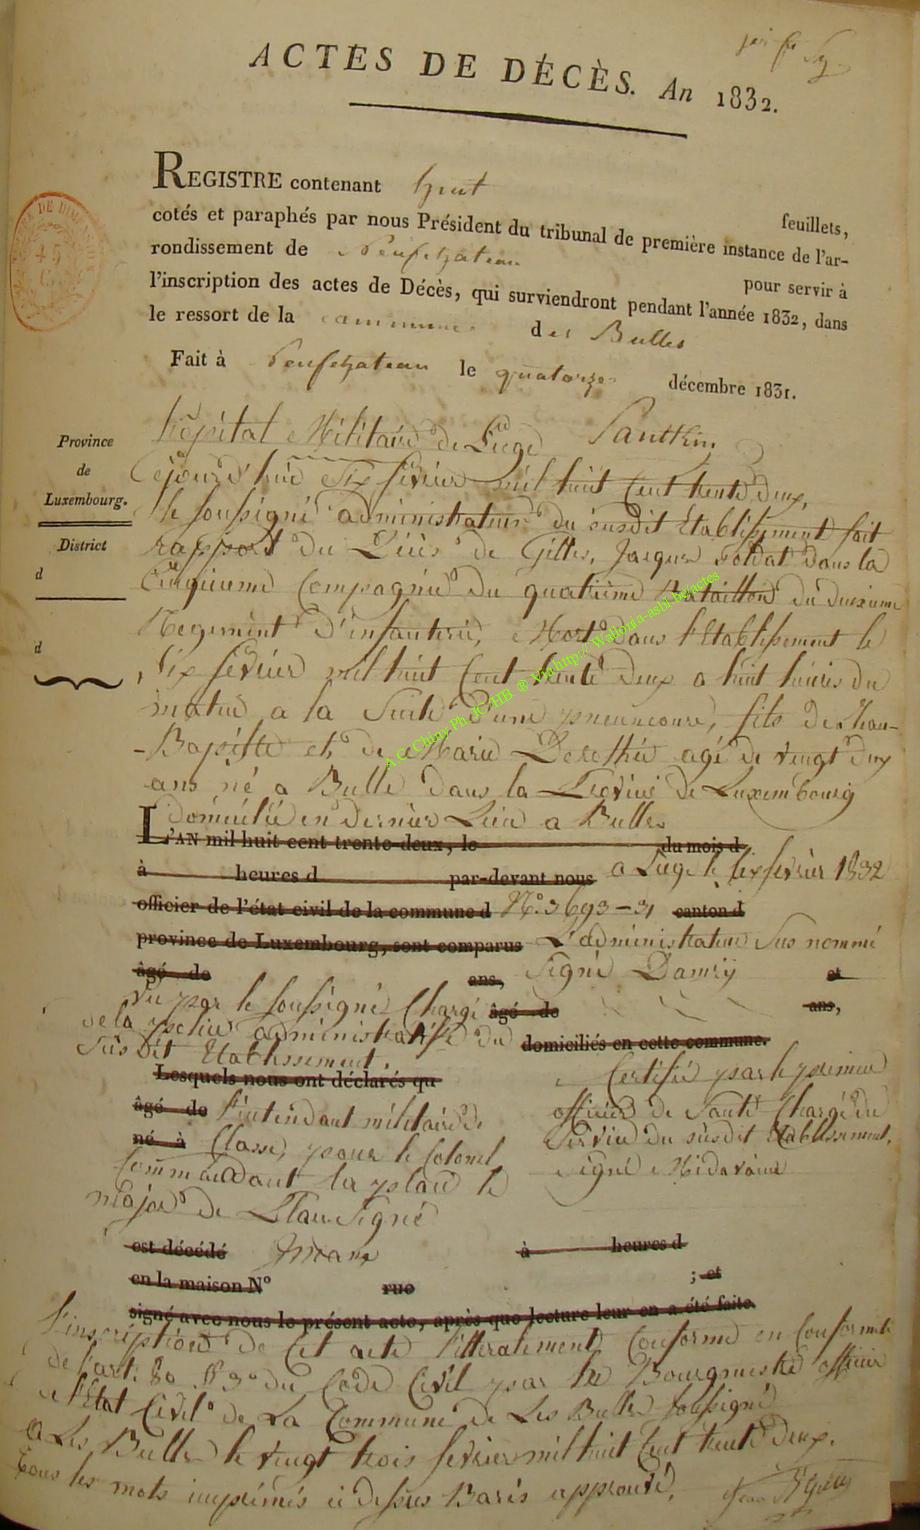 ACTES DE DÉCÈS. An 1832.
REGISTRE contenant huit feuillets,
cotés et paraphés par nous Président du tribunal de première instance de l'ar-
rondissement de Neufchateau pour servir à
l'inscription des actes de Décès, qui surviendront pendant l'année 1832, dans
le ressort de la commune des Bulles
Fait à Neufchateau le quatorze décembre 1831.
Province
de
Luxembourg.
District
d
d
hôpital Militaire de Liége
Cejourd'hui Six février mil huit Cent trente deux,
le soussigné administrateur du susdit Etablissement fait
rapport du Décès de Gilles, Jacques soldat dans la
Cinquieme Compagnie du quatrième Bataillon du
Regiment d'infanterie, Mort dans l'Etablissement le
Six février mil huit Cent trente deux a huit heures du
matin a la Suite d'une fils de Jean-
-Bapstte et de Marie agé de vingt deux
ans né a Bulle dans la Province de Luxembourg
domicilié en dernier Lieu a Bulles
L'AN mil huit cent trente-deux, le du mois d
à heures d par-devant nous a Liege le six février 1832
officier de l'état civil de la commune d N.° 3693-31 canton d
province de Luxembourg, sont comparus L'administrateur Sus nommé
âgé de ans, Signé et
Vu par le soussigné Chargé âgé de ans,
de la administrative du
Susdit Etablissement. domiciliés en cette commune.
Lesquels nous ont déclarés qu
Certifié par le premier
âgé de l'intendant militaire de officier de Santé Chargé du
né à Classe, pour le Colonel Service du susdit Etablissement,
Commandant la place le Signé
major de Signé
est décédé à heures d
en la maison N° rue ; et
signé avec nous le présent acte, après que lecture leur en a été faite.
l'inscription de Cet acte litteralement Conforme en Conformité
de l'art. 80 du Code Civil par le Bourgmestre officier
de l'Etat Civil de La Commune de Les Bulles soussigné
a Les Bulles le vingt trois février mil huit Cent trente deux.
tous les mots imprimés ci dessus Barés approuvé,
A G Chiny Ph JC HB ® Via http://Wallonia-asbl.be/actes